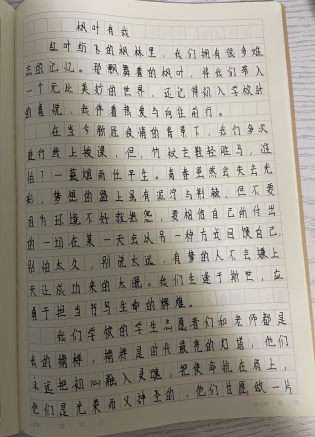 枫叶有我
红叶纷飞的枫林里，我们拥有很多难
忘的记忆。那飘舞着的枫叶，将我们带入
一个无比美妙的世界，还记得初入学校时
的喜悦，我伴着热爱与向往前行。
在当今新冠疫情的背景下，我们多次
进行线上授课，但，竹杖芒鞋轻胜马，谁
怕！一蓑烟雨任平生。青春虽然会失去光
彩，梦想的路上虽有泥泞与荆棘，但不要
因为环境不好就抱怨，要相信自己的付出
的一切在某一天会以另一种方式回馈自己，
别怕太久，别说太远，有梦的人不会嫌上
天让成功来的太晚。我们生逢于斯世，应
勇于担当书写生命的辉煌。
我们学校的学生志愿者们和老师都是
我的榜样，榜样是时代最亮的灯塔，他们
永远把初心融入灵魂，把使命抗在肩上，
他们是光荣而又神圣的，他们甘愿做一片